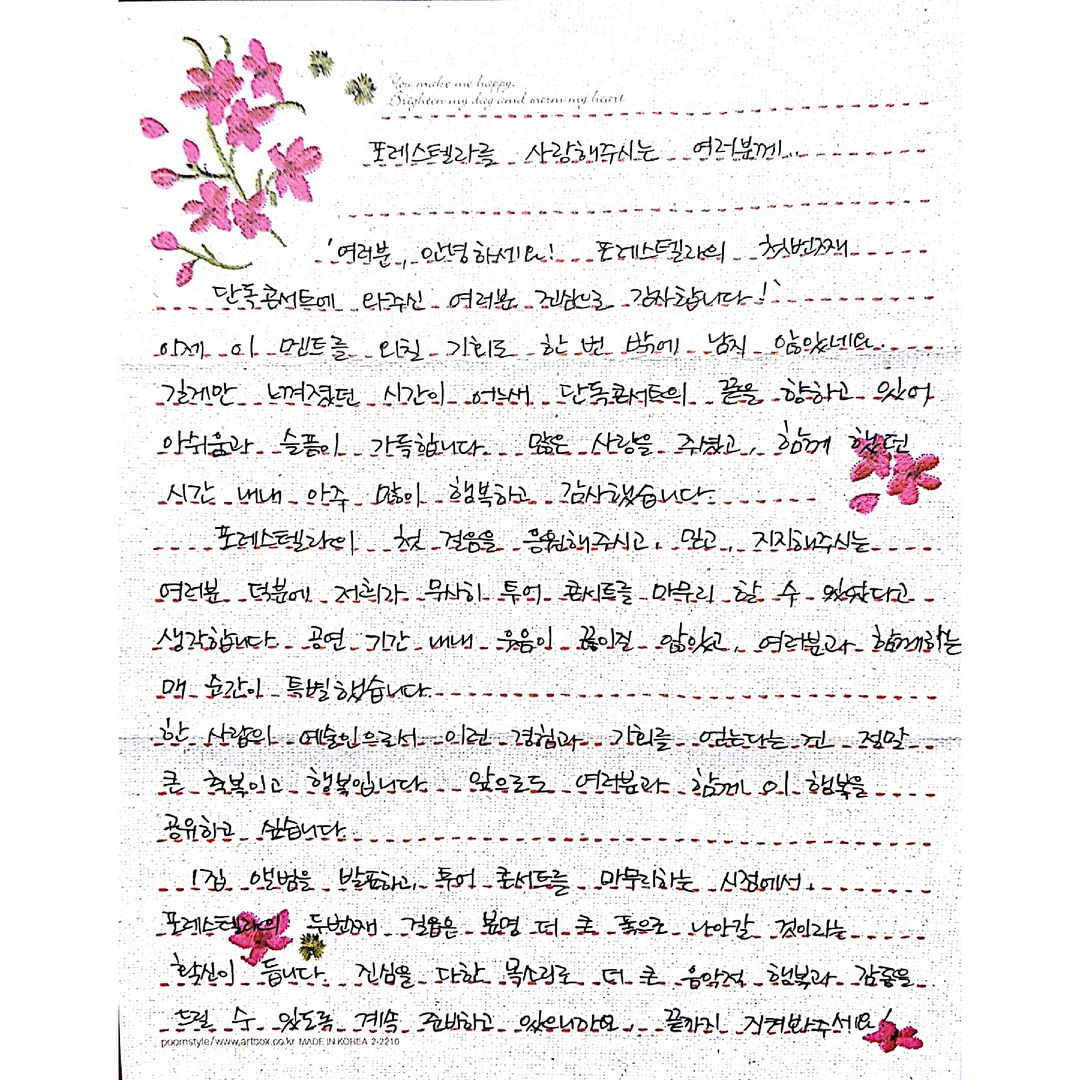 You make me happy.
Brighten my day and warm my heart
포레스텔라를 사랑해주시는 여러분께..
'여러분, 안녕하세요! 포레스텔라의 첫번째
단독콘서트에 와주신 여러분 진심으로 감사합니다!'
이제 이 멘트를 외칠 기회도 한 번 밖에 남지 않았네요.
길게만 느껴졌던 시간이 어느새 단독콘서트의 끝을 향하고 있어
아쉬움과 슬픔이 가득합니다. 많은 사랑을 주셨고, 함께 했던
시간 내내 아주 많이 행복하고 감사했습니다.
포레스텔라의 첫 걸음을 응원해주시고, 믿고, 지지해주시는
여러분 덕분에 저희가 무사히 투어 콘서트를 마무리 할 수 있었다고
생각합니다. 공연 기간 내내 웃음이 끊이질 않았고, 여러분과 함께하는
매 순간이 특별했습니다.
한 사람의 예술인으로서 이런 경험과 기회를 얻는다는 건 정말
큰 축복이고 행복입니다. 앞으로도 여러분과 함께 이 행복을
공유하고 싶습니다.
1집 앨범을 발표하고, 투어 콘서트를 마무리하는 시점에서,
포레스텔라의 두번째 걸음은 분명 더 큰 폭으로 나아갈 것이라는
확신이 듭니다. 진심을 다한 목소리로 더 큰 음악적 행복과 감동을
드릴 수 있도록 계속 준비하고 있으니까요, 끝까지 지켜봐주세요!
poomstyle/www.artbox.co.kr MADE IN KOREA 2-2210